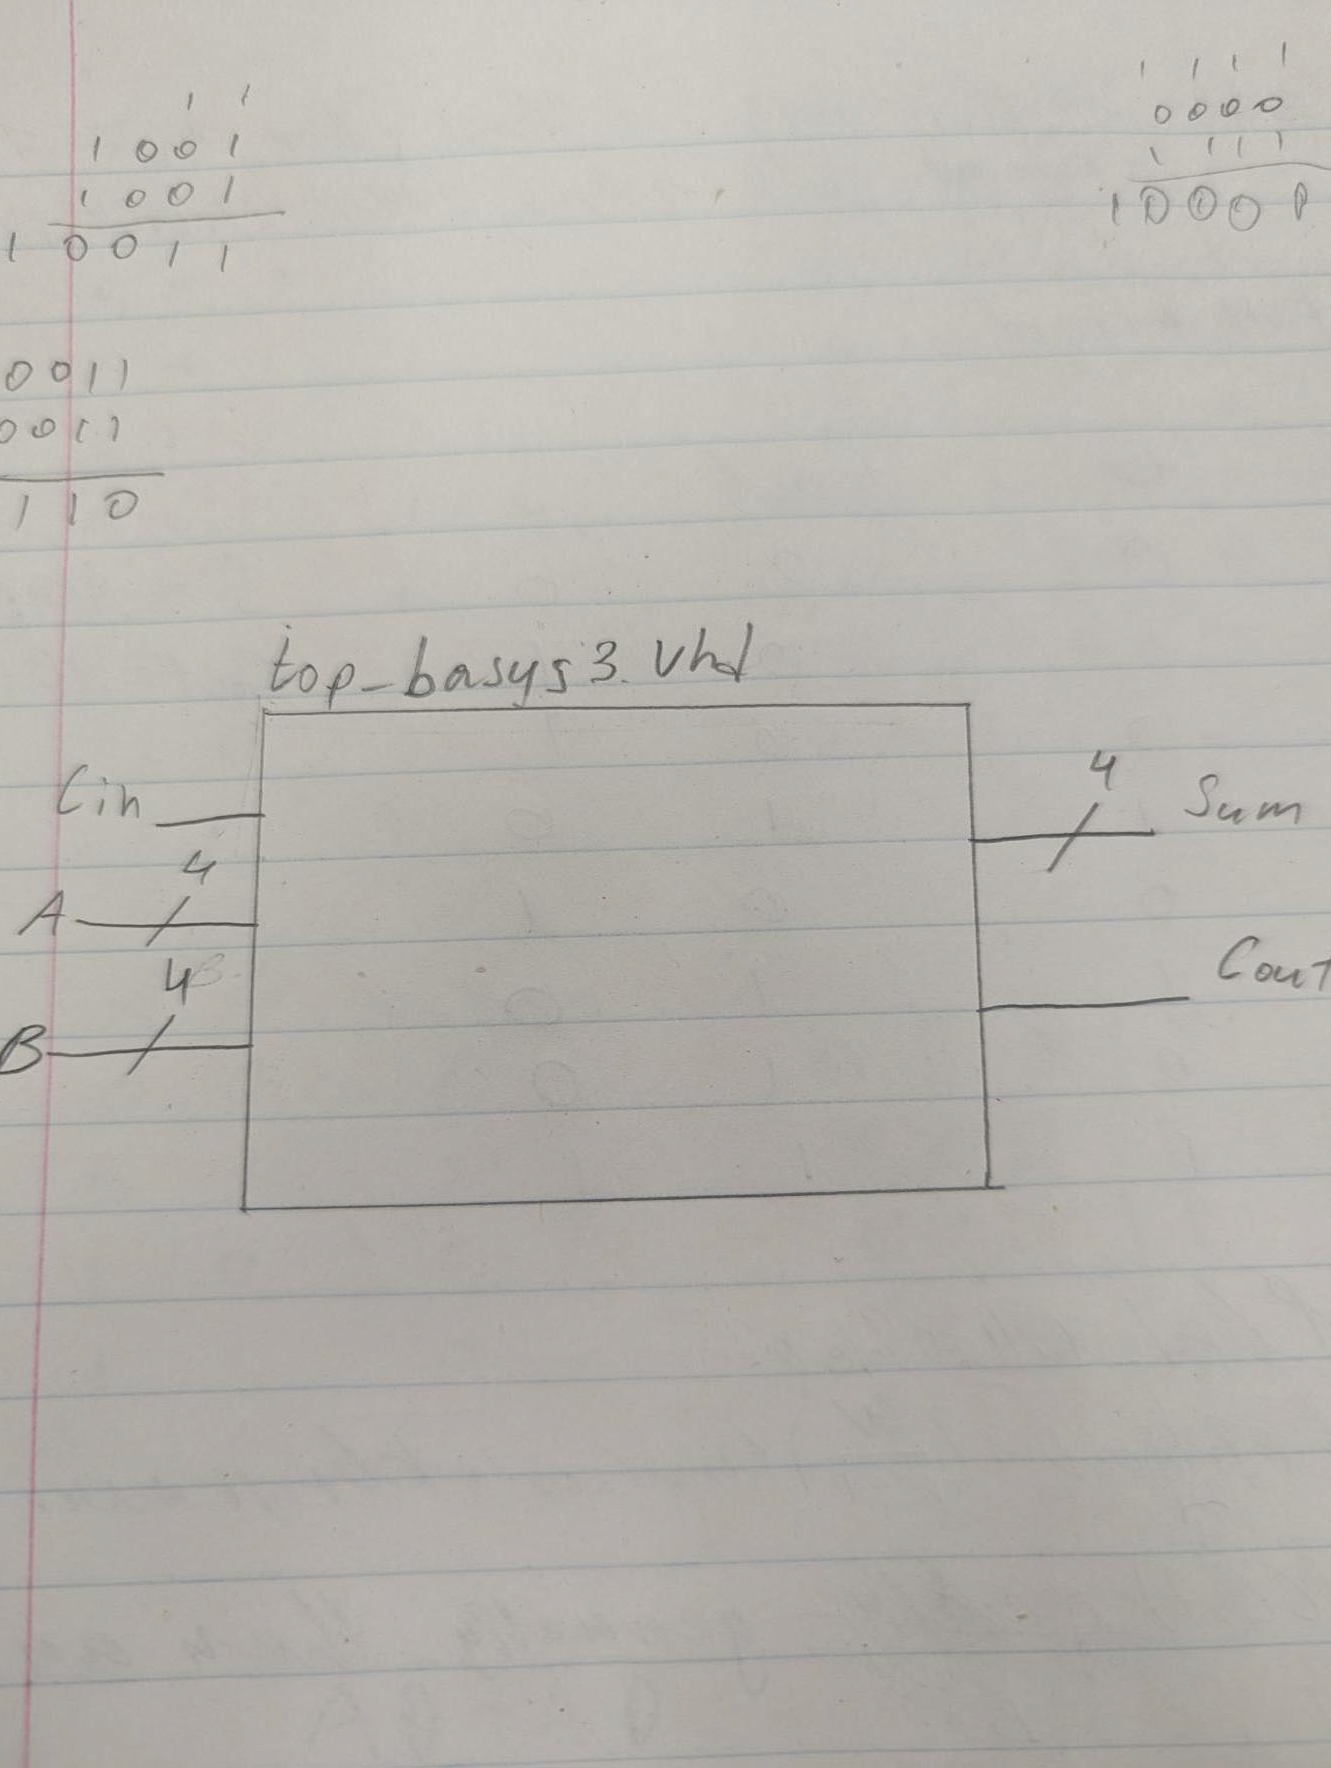 1 1
1 0 0 1
1 0 0 1
1 0 0 1 1
1 1 1 1
0 0 0 0
1 1 1 1
1 0 0 0 0
0 0 1 1
0 0 1 1
1 1 0
top_basys3.vhd
Cin
4
A
4
B
4
Sum
Cout